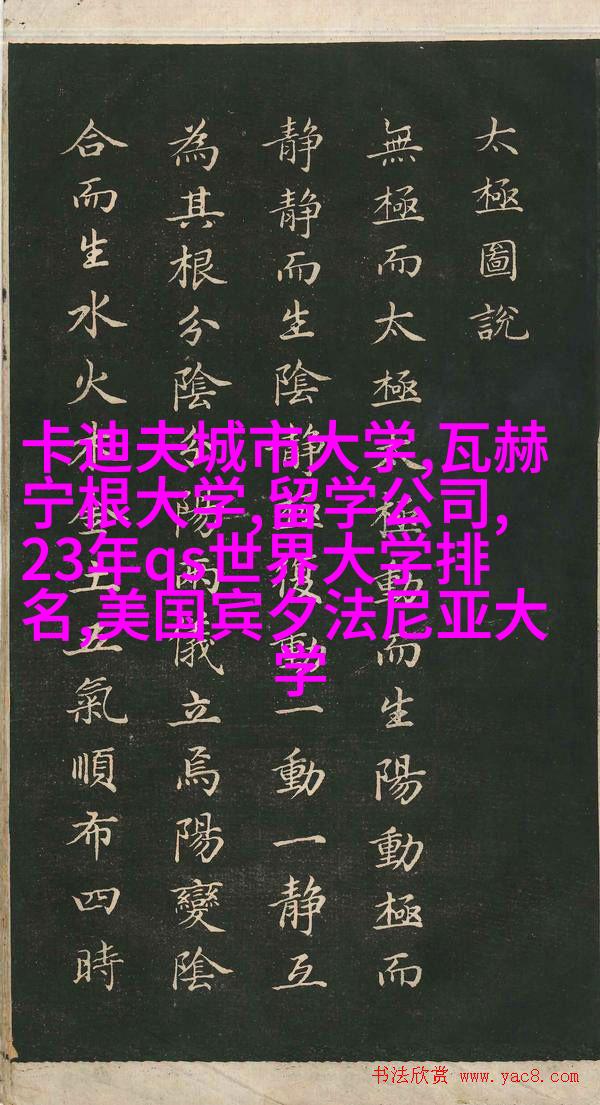 太極圖說
無極而太極太極動而生陽動極而
静静而生陰静極復動一動一静互
為其根分陰分陽兩儀立焉陽變陰
合而生水火木金土五氣順布四時
卡迪夫城市大学,瓦赫
宁根大学,留学公司,
23年qs世界大学排
名,美国宾夕法尼亚大
学
书法欣赏 www.yac8.com